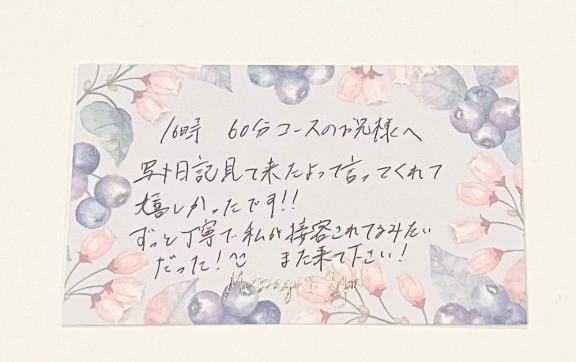 16時 60分コースのお兄様へ
写メ日記見て来たよって言ってくれて
嬉しかったです!!
ずっと丁寧で私が接客されてるみたい
だった! また来て下さい!
Message for You